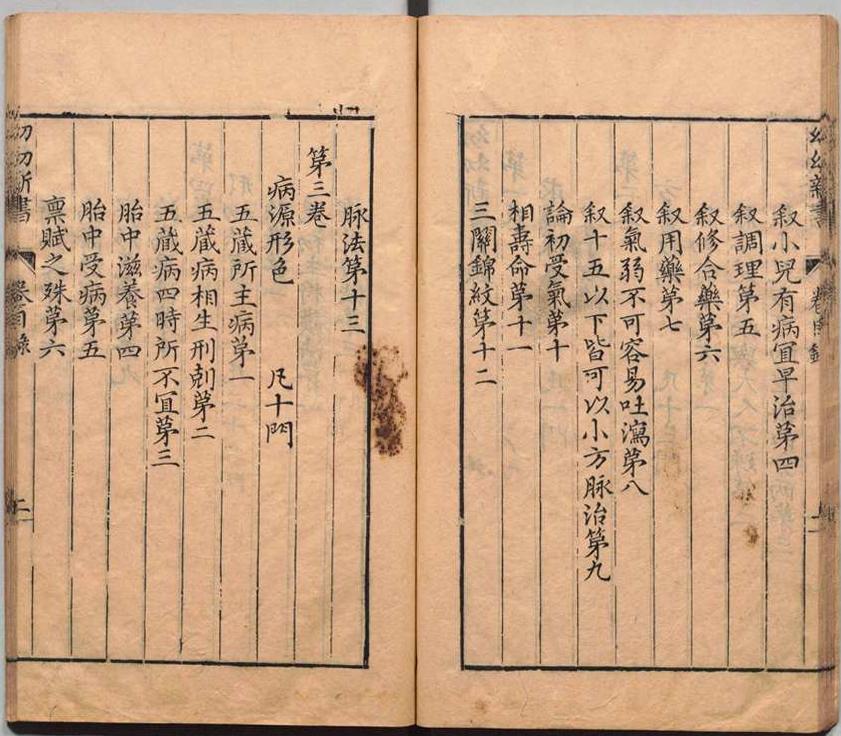 幼幼新書 卷目錄 一
叙小兒有病冝早治第四
叙調理第五
叙修合藥第六
叙用藥第七
叙氣弱不可容易吐瀉第八
叙十五以下皆可以小方脉治第九
論初受氣第十
相壽命第十一
三關錦紋第十二
脉法第十三
第三卷
病源形色 凡十門
五蔵所主病第一
五蔵病相生刑剋第二
五蔵病四時所不冝第三
胎中滋養第四
胎中受病第五
禀賦之殊第六
幼幼新書 卷目錄 二